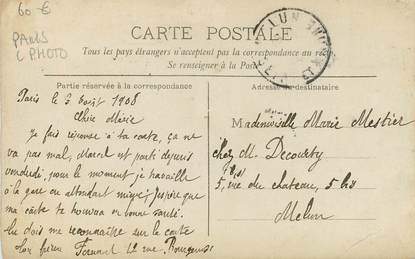 60 €
PARIS
C PHOTO
CARTE POSTALE
MELUN SEINE ET
Tous les pays étrangers n'acceptent pas la correspondance au recto.
Se renseigner à la Poste
Partie réservée à la correspondance
Adresse du destinataire
Paris le 3 août 1908
Chère Marie
Je fais réponse à ta carte, ça ne
va pas mal, Marcel est parti depuis
vendredi, pour le moment je travaille
à la gare en attendant mieux, j'espère que
ma carte te trouvera en bonne santé.
Tu dois me reconnaître sur la carte
Ton frère Fernand 12 rue
Mademoiselle Marie Mestier
chez M. Decourty
5, rue du chateau, 5 bis
Melun